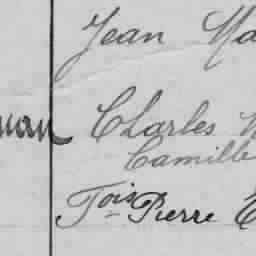 Jean Ma
Charles
Camille
Fois Pierre